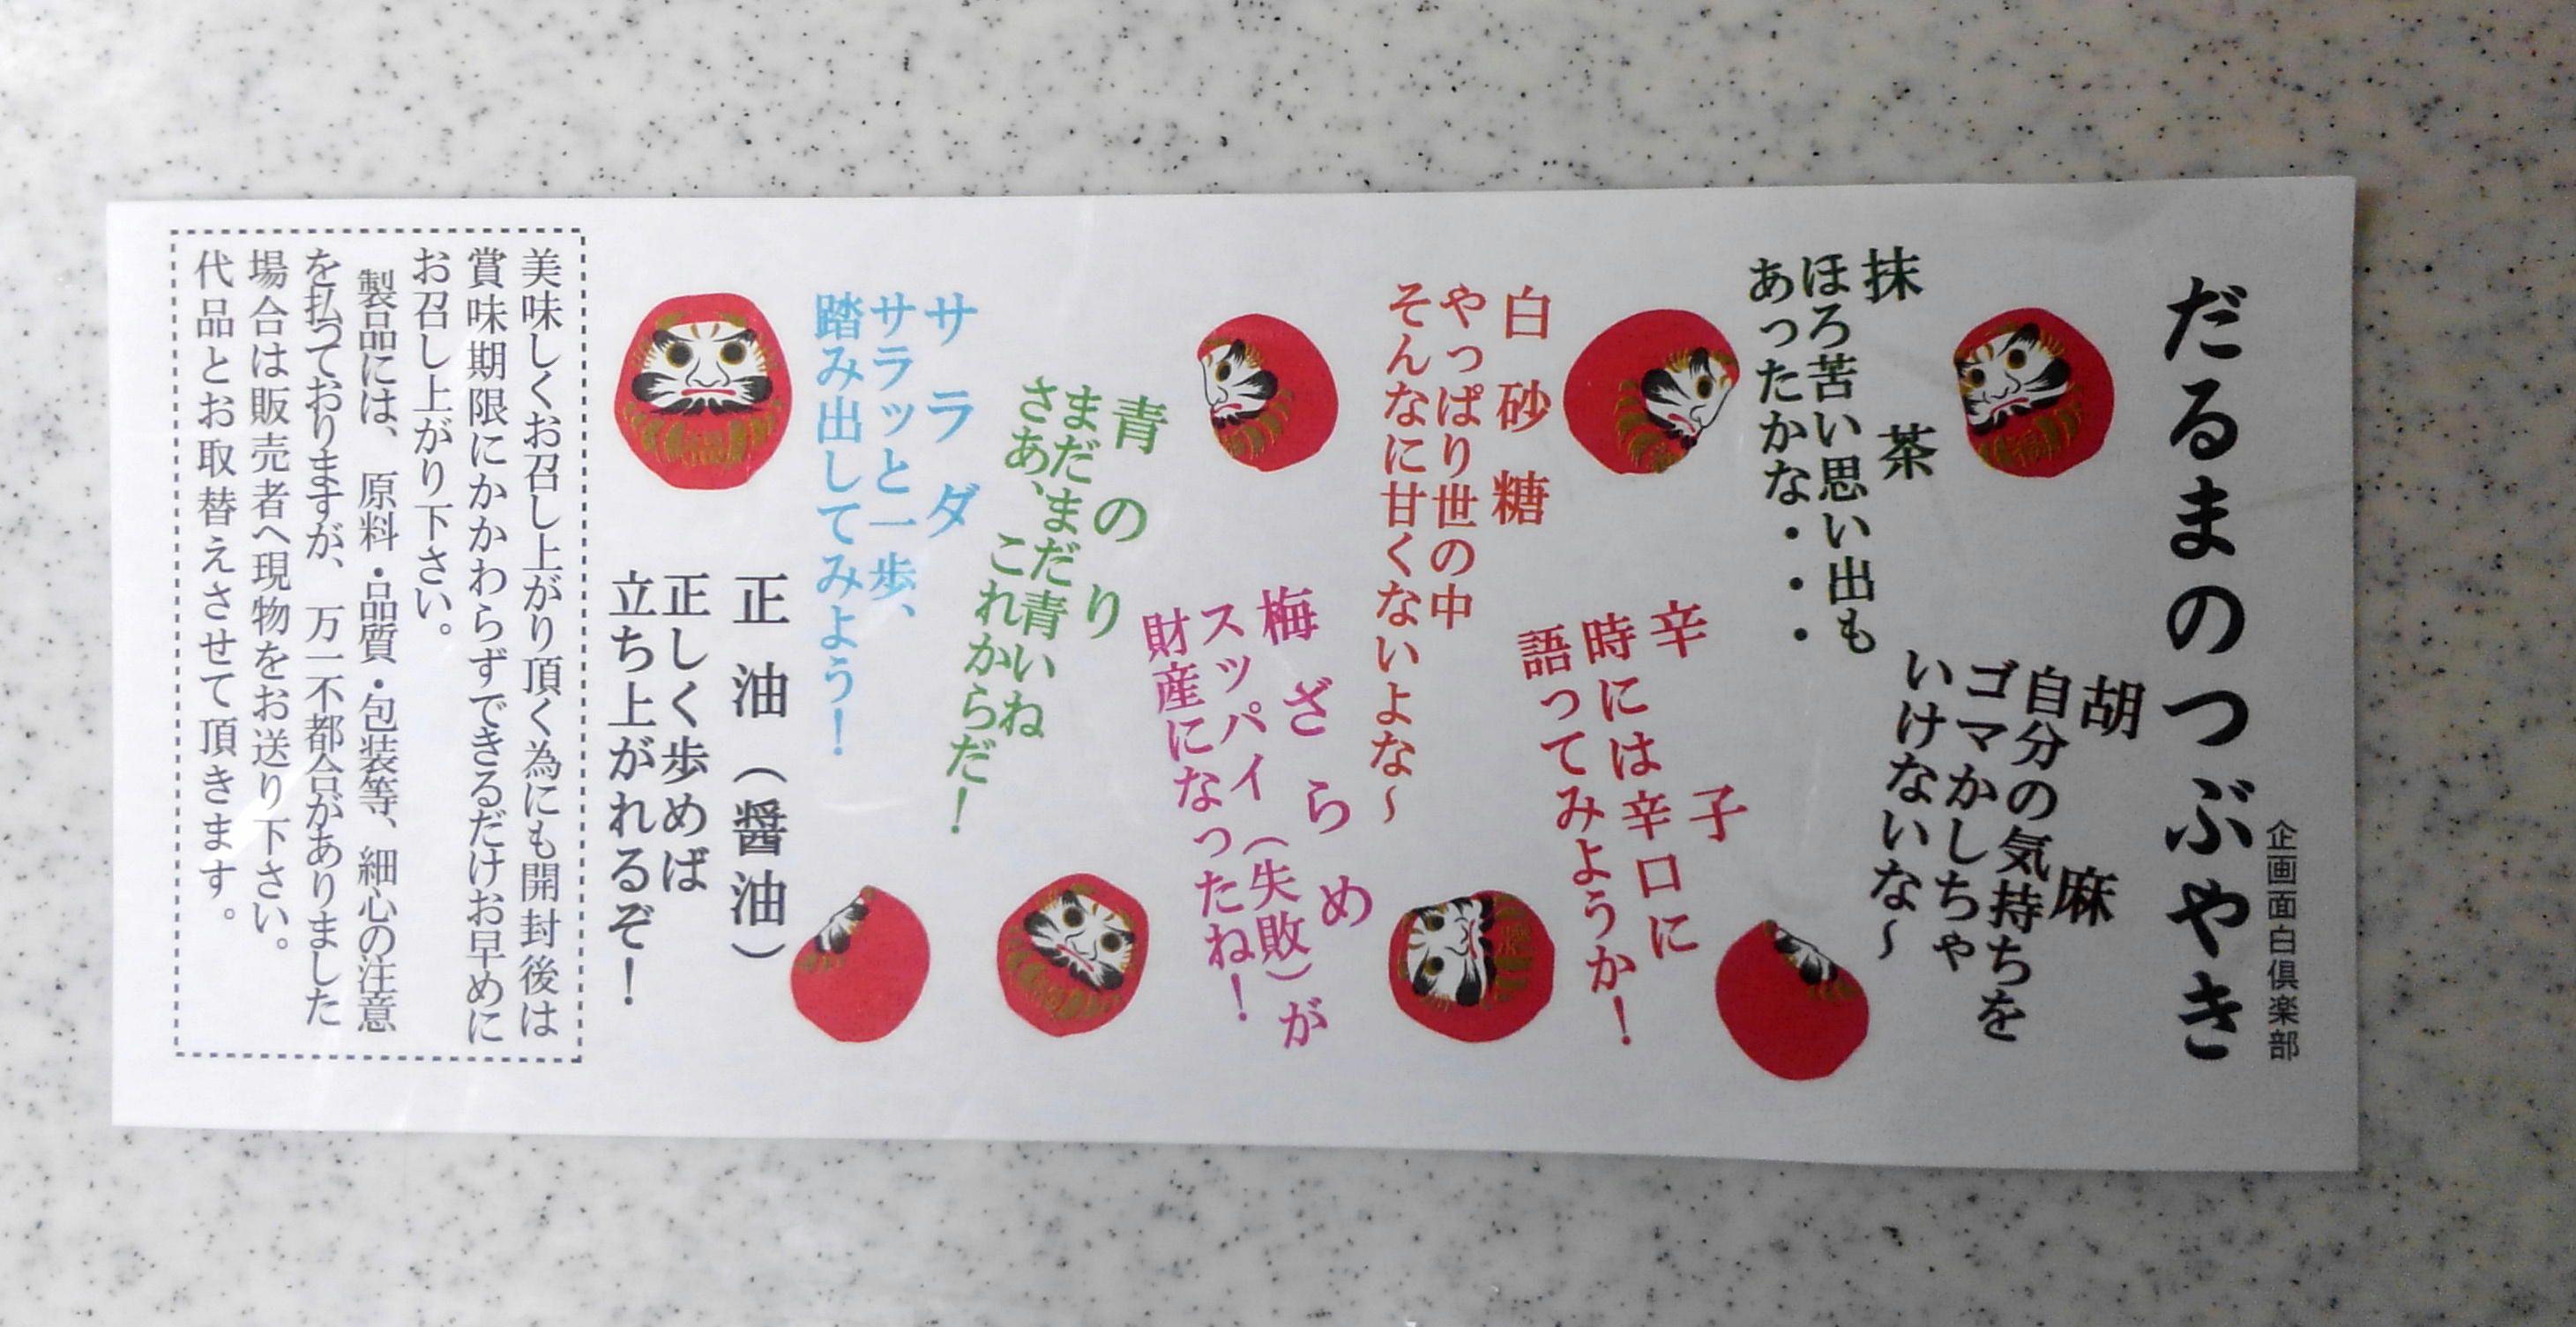 企画面白倶楽部
だるまのつぶやき
胡麻
自分の気持ちを
ゴマかしちゃ
いけないな～
抹茶
ほろ苦い思い出も
あったかな・・・
辛子
時には辛口に
語ってみようか！
白砂糖
やっぱり世の中
そんなに甘くないよな～
梅ざらめ
スッパイ（失敗）が
財産になったね！
青のり
まだまだ青いね
さあ、これからだ！
サラダ
サラッと一歩、
踏み出してみよう！
正油（醤油）
正しく歩めば
立ち上がれるぞ！
美味しくお召し上がり頂く為にも開封後は
賞味期限にかかわらずできるだけお早めに
お召し上がり下さい。
製品には、原料・品質・包装等、細心の注意
を払っておりますが、万一不都合がありました
場合は販売者へ現物をお送り下さい。
代品とお取替えさせて頂きます。